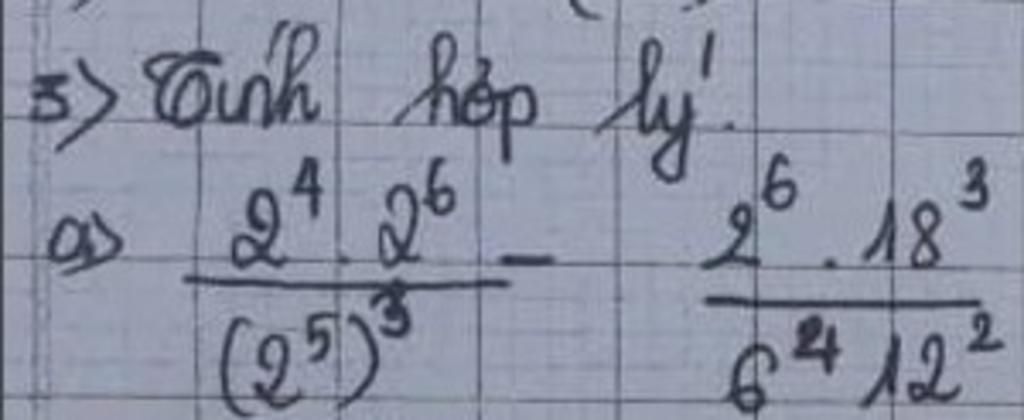 3) Tính hợp lý.
a) \frac{2^4 . 2^6}{(2^5)^3} - \frac{2^6 . 18^3}{6^4 12^2}